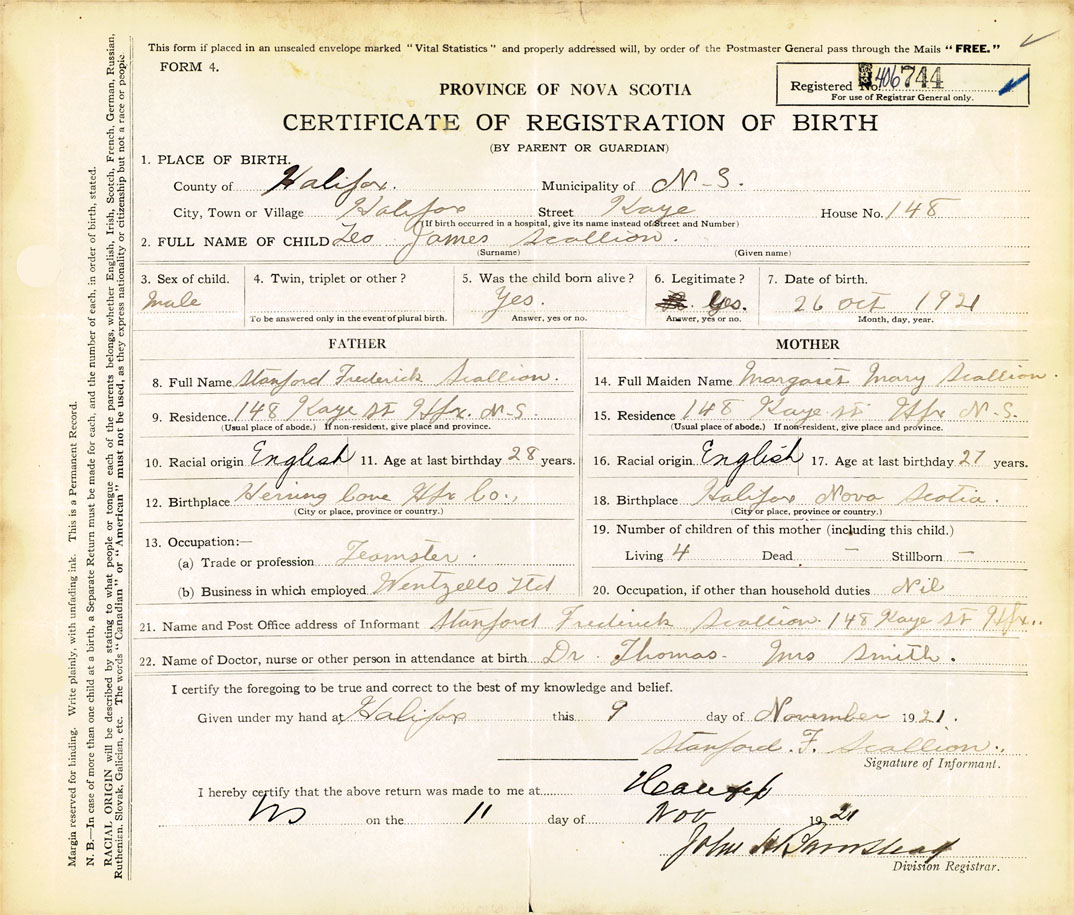 This form if placed in an unsealed envelope marked "Vital Statistics" and properly addressed will, by order of the Postmaster General pass through the Mails "FREE."
FORM 4.
Registered No. 406744
For use of Registrar General only.
PROVINCE OF NOVA SCOTIA
CERTIFICATE OF REGISTRATION OF BIRTH
(BY PARENT OR GUARDIAN)
1. PLACE OF BIRTH.
County of Halifax. Municipality of N-S.
City, Town or Village Halifax Street Kaye House No. 148
(If birth occurred in a hospital, give its name instead of Street and Number)
2. FULL NAME OF CHILD Leo James Scallion.
(Surname) (Given name)
3. Sex of child. 4. Twin, triplet or other? 5. Was the child born alive? 6. Legitimate? 7. Date of birth.
Male Yes. Yes. 26 Oct 1921
To be answered only in the event of plural birth. Answer, yes or no. Answer, yes or no. Month, day, year.
FATHER
8. Full Name Stanford Frederick Scallion.
9. Residence. 148 Kaye St Hfx. N-S.
(Usual place of abode.) If non-resident, give place and province.
10. Racial origin English 11. Age at last birthday 28 years.
12. Birthplace Herring Cove Hfx Co.,
(City or place, province or country.)
13. Occupation:—
(a) Trade or profession Teamster.
(b) Business in which employed Wentzells Ltd
MOTHER
14. Full Maiden Name Margaret Mary Scallion.
15. Residence 148 Kaye st Hfx N-S.
(Usual place of abode.) If non-resident, give place and province.
16. Racial origin English 17. Age at last birthday 27 years.
18. Birthplace Halifax Nova Scotia.
(City or place, province or country.)
19. Number of children of this mother (including this child.)
Living 4 Dead — Stillborn —
20. Occupation, if other than household duties Nil
21. Name and Post Office address of Informant Stanford Frederick Scallion. 148 Kaye St Hfx..
22. Name of Doctor, nurse or other person in attendance at birth Dr. Thomas. Mrs Smith.
I certify the foregoing to be true and correct to the best of my knowledge and belief.
Given under my hand at Halifax this 9 day of November 1921.
Stanford. F. Scallion.
Signature of Informant.
I hereby certify that the above return was made to me at Halifax
NS on the 11 day of Nov 1921
John H Barnstead
Division Registrar.
Margin reserved for binding. Write plainly, with unfading ink. This is a Permanent Record.
N. B.—In case of more than one child at a birth, a Separate Return must be made for each, and the number of each, in order of birth, stated.
RACIAL ORIGIN will be described by stating to what people or tongue each of the parents belongs, whether English, Irish, Scotch, French, German, Russian,
Ruthenian, Slovak, Galician, etc. The words "Canadian" or "American" must not be used, as they express nationality or citizenship but not a race or people